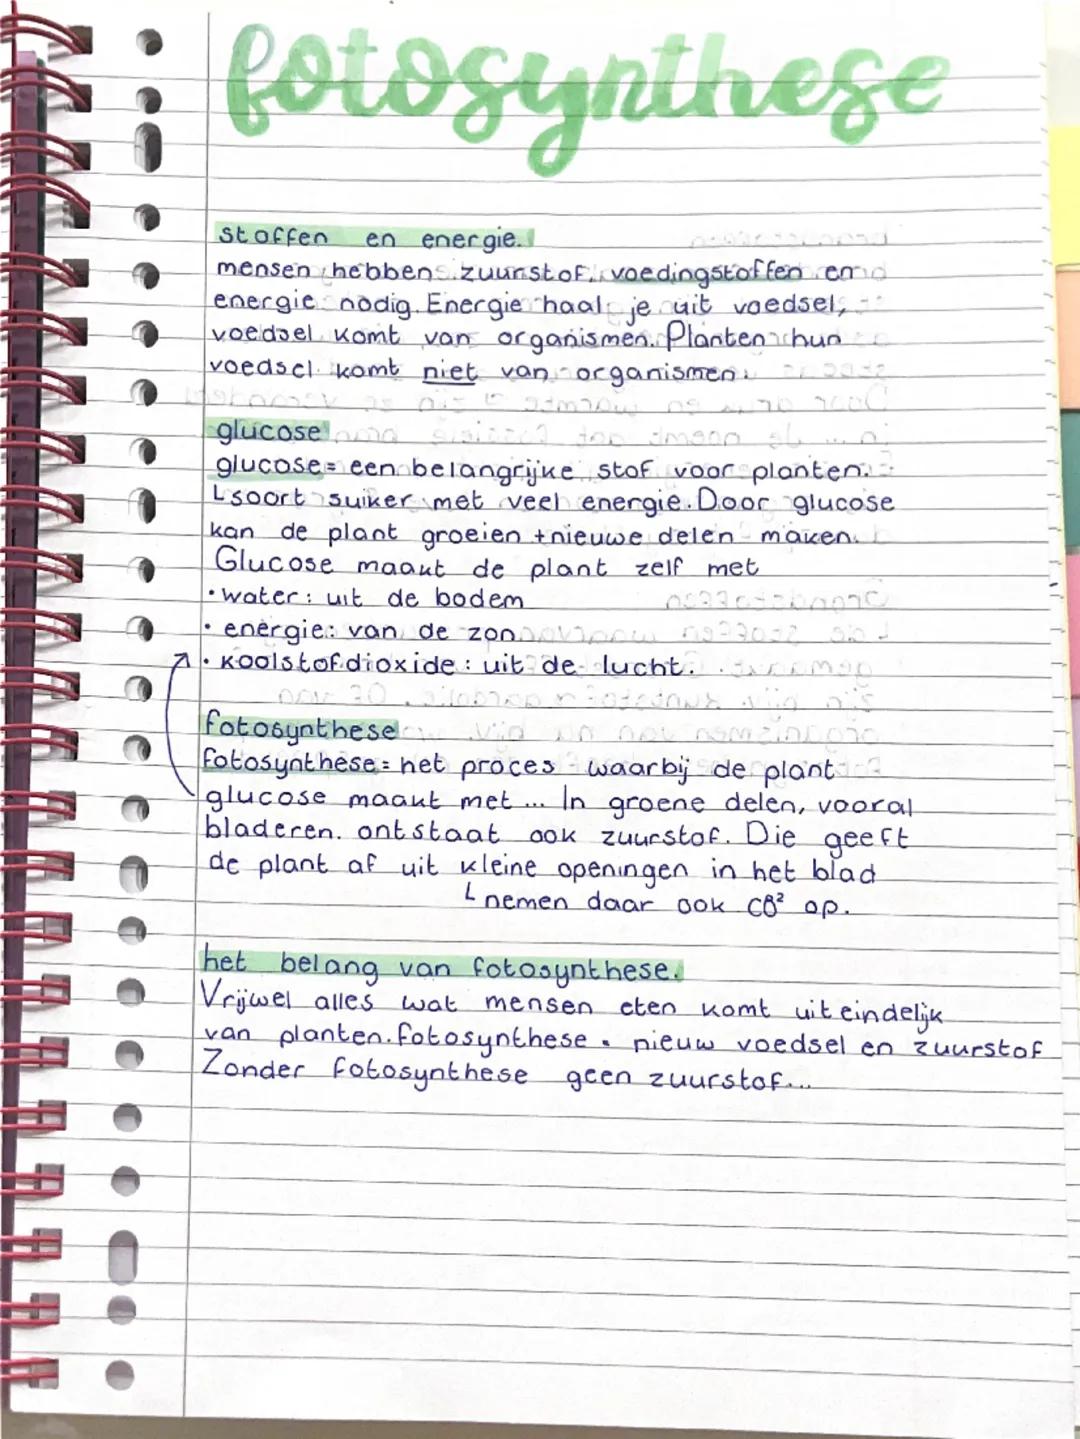 fotosynthese
stoffen en energie.
mensen hebben zuurstof, voedingstoffen en
energie nodig. Energie haal je uit voedsel,
voedsel komt van organismen. Planten hun
voedsel komt niet van organismen.
glucose
glucose = een belangrijke stof voor planten.
↳ soort suiker met veel energie. Door glucose
kan de plant groeien + nieuwe delen maken.
Glucose maakt de plant zelf met
• water: uit de bodem
• energie: van de zon
• koolstofdioxide: uit de lucht.
fotosynthese
fotosynthese = het proces waarbij de plant
glucose maakt met ... In groene delen, vooral
bladeren. ontstaat ook zuurstof. Die geeft
de plant af uit kleine openingen in het blad
↳ nemen daar ook CO² op.
het belang van fotosynthese.
Vrijwel alles wat mensen eten komt uiteindelijk
van planten. fotosynthese = nieuw voedsel en zuurstof
Zonder fotosynthese geen zuurstof...